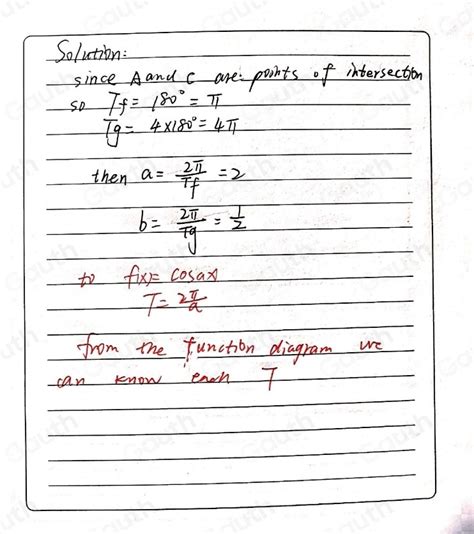 Solution:
since A and C are points of intersection
so T_f = 180° = π
T_g = 4×180° = 4π
then a = 2π/T_f = 2
b = 2π/T_g = 1/2
to f(x) = cosax
T = 2π/a
from the function diagram we
can know each T